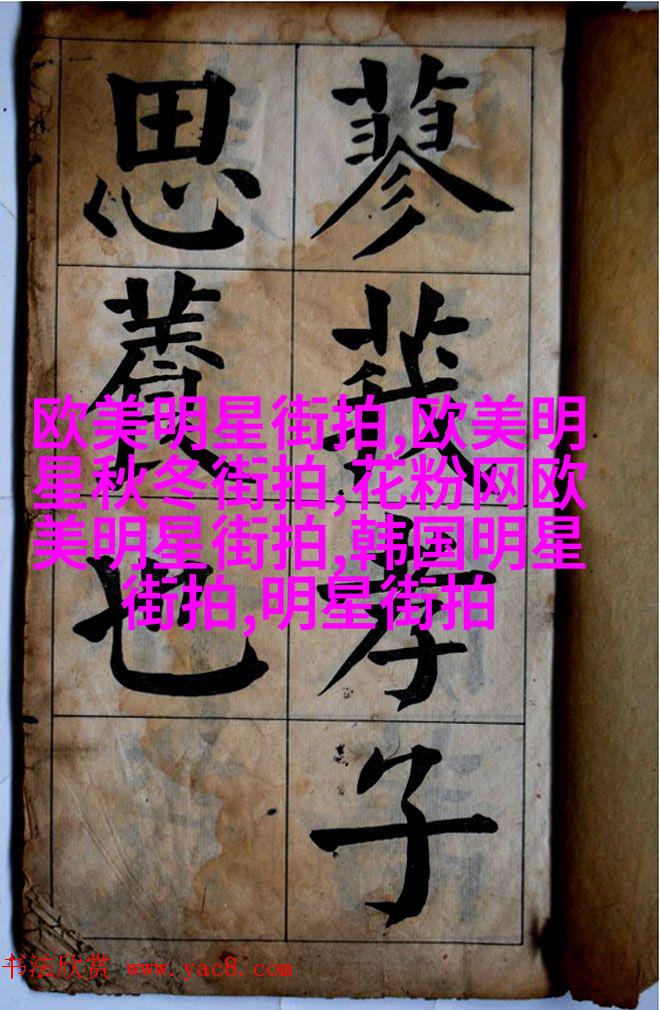 蓼莪孝子
思養也
欧美明星街拍,欧美明
星秋冬街拍,花粉网欧
美明星街拍,韩国明星
街拍,明星街拍
书法欣赏 www.yac8.com